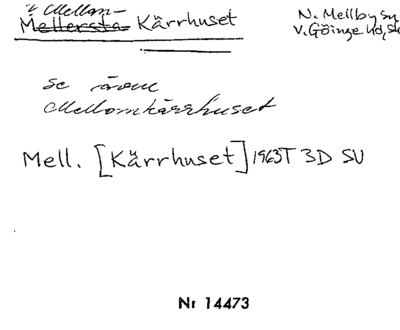 Mellom-
Mellersta Kärrhuset
N. Mellby sn
V. Göinge hd, Sk
se även
Mellomkärrhuset
Mell. [Kärrhuset] 1963T 3D SV
Nr 14473